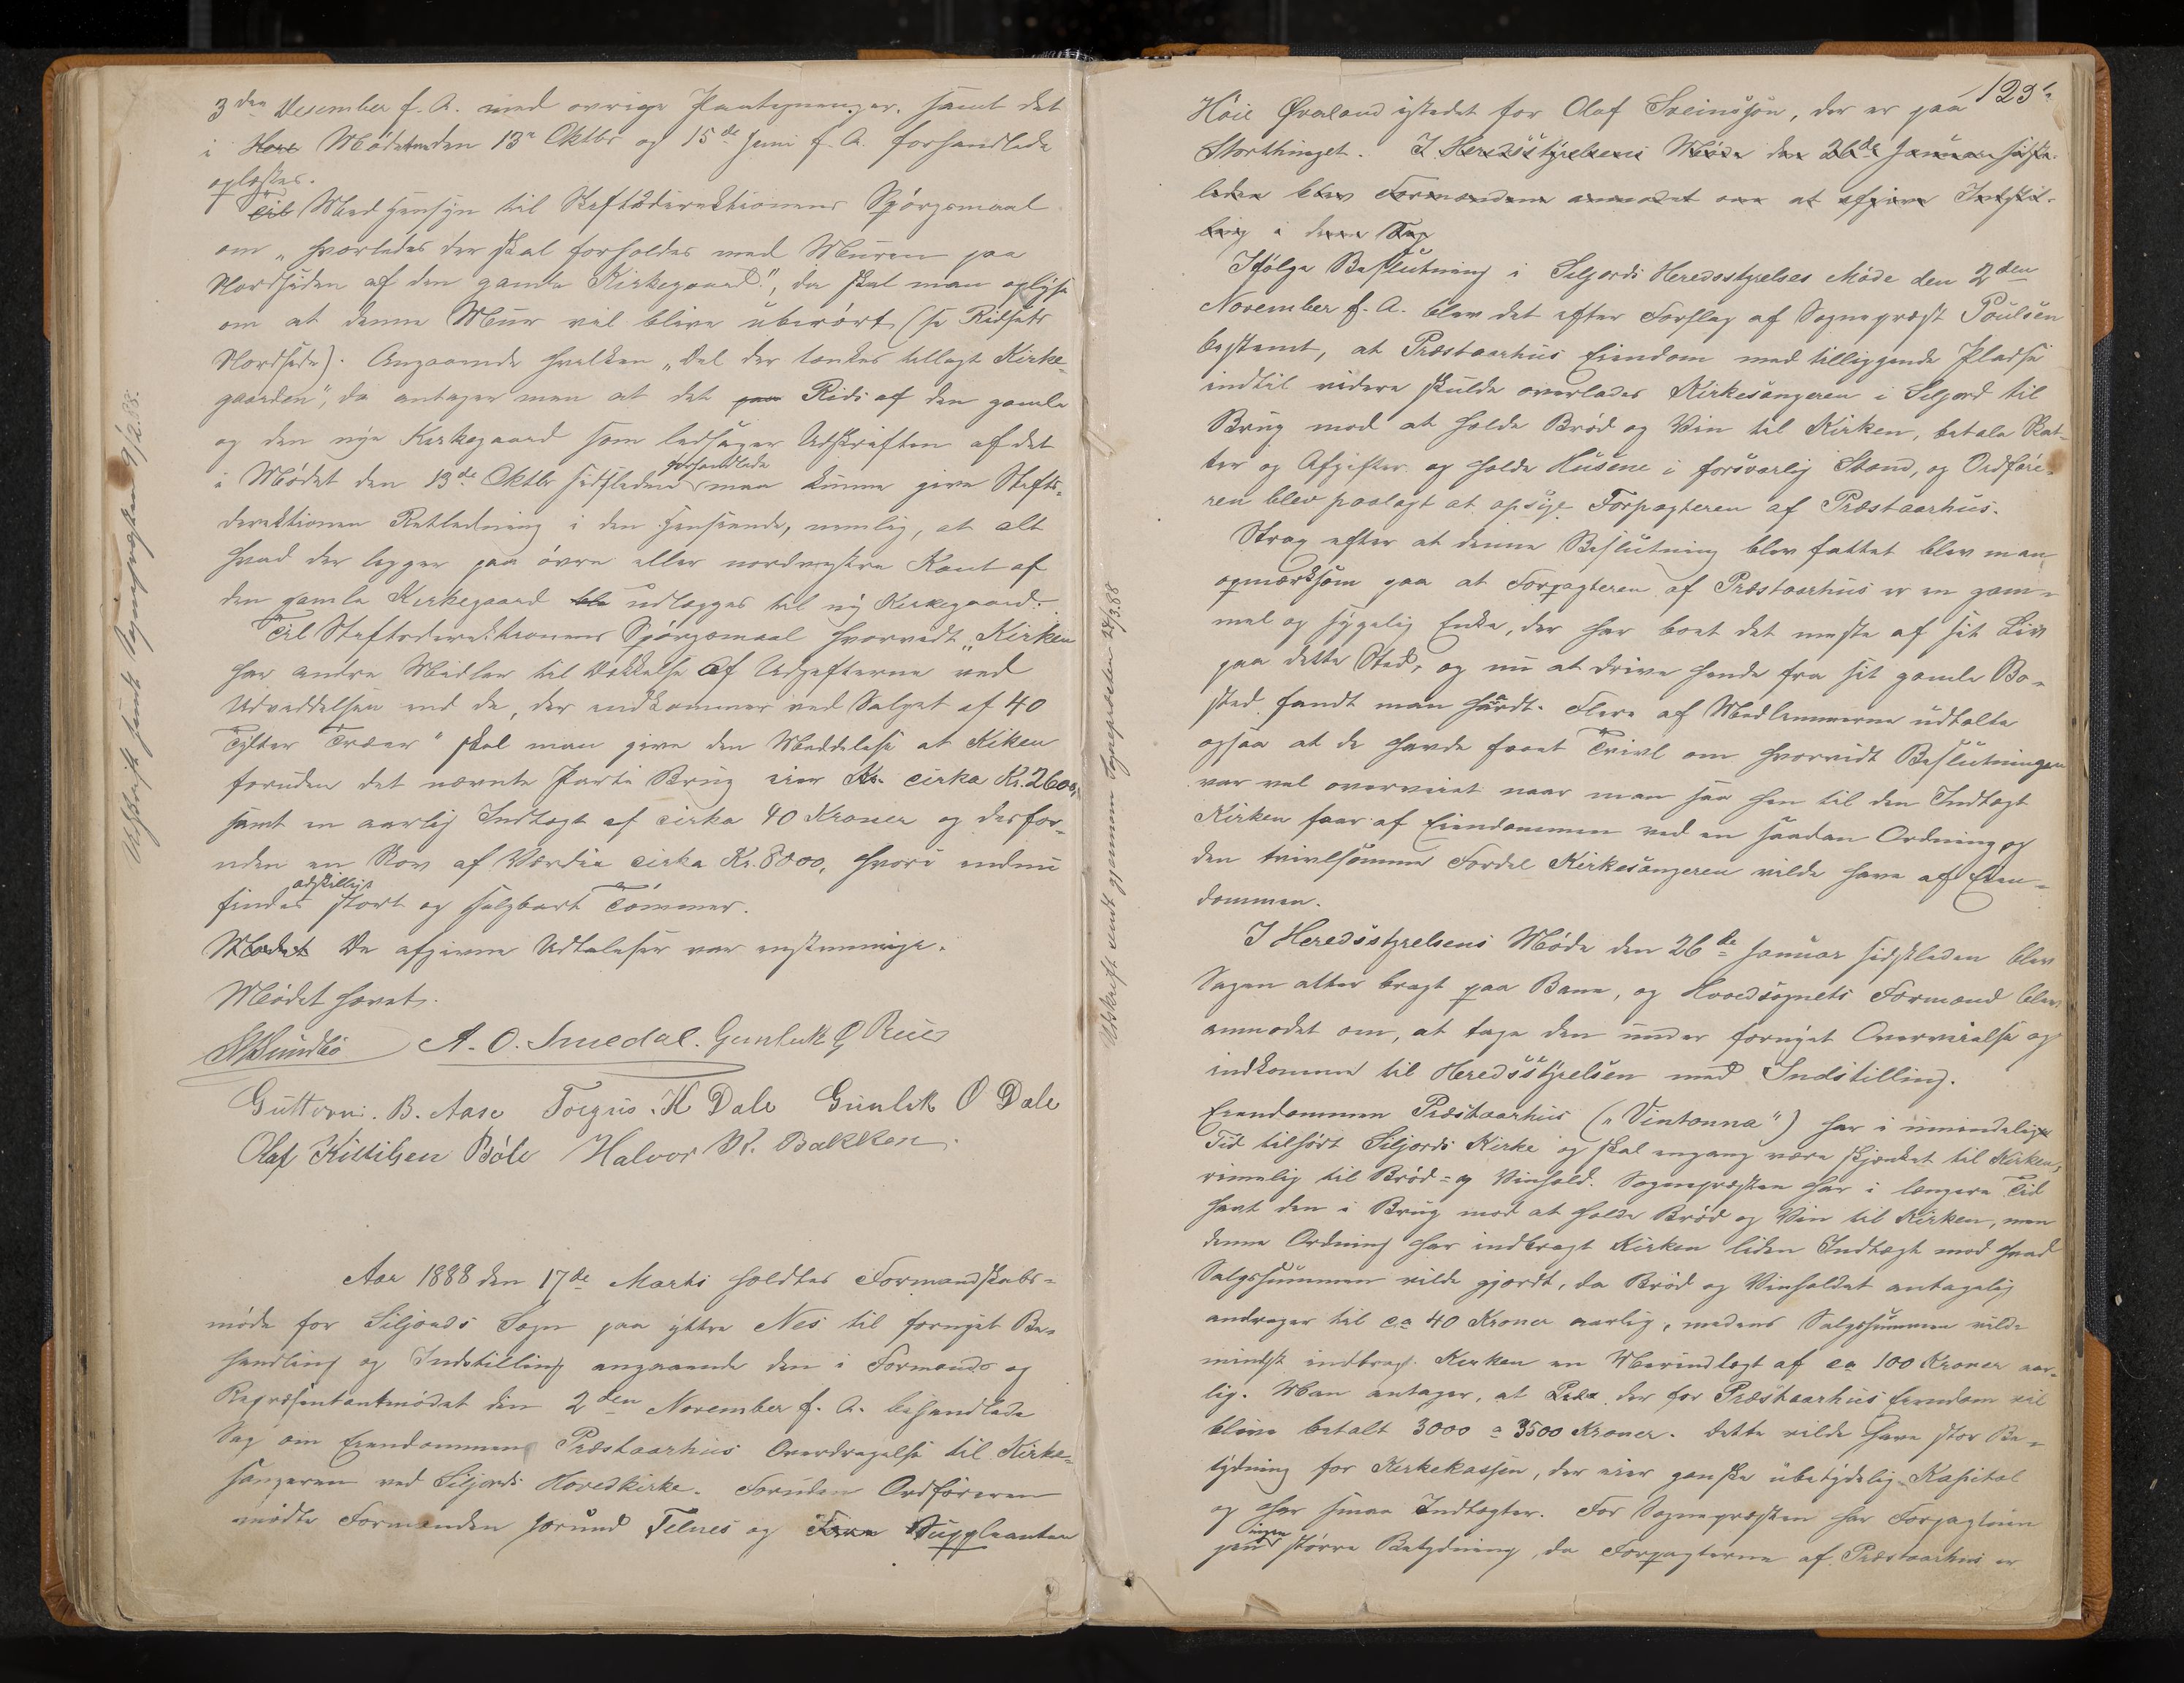 3den Desember f. A. med øvrige Paategninger, samt det
i Here Mødetenden 13de Oktbr og 15de Juni f. A. forhandlede
oplæstes.
Til Med Hensyn til Stiftsdirektionens Spörgsmaal
om „hvorledes der skal forholdes med Muren paa
Nordsiden af den gamle Kirkegaard“, da skal man oplyse
om at denne Muur vil blive uberört (se Ridsets
Nordside). Angaaende hvilken „Del der tænkes tillagt Kirke-
gaarden“, da antager man at det paa Rids af den gamle
og den nye Kirkegaard som ledsager Udskriften af det
i Mödet den 13de Oktbr sidstleden forhandlede man kunne give Stifts-
direktionen Retledning i den Henseende, nemlig, at alt
hvad der ligger paa övre eller nordvestre Kant af
den gamle Kirkegaard ble udlægges til ny Kirkegaard.
Til Stiftsdirektionens Spörgsmaal hvorvidt „Kirken
har andre Midler til Dækkelse af Udgifterne ved
Udvidelsen end de, der indkommer ved Salget af 40
Tylter Træer“ skal man give den Meddelelse at Kiken
foruden det nævnte Parti Brug eier Kr. cirka Kr. 2600,
samt en aarlig Indtægt af cirka 40 Kroner og desfor-
uden en Skov af Værdie cirka Kr. 8000, hvori endnu
findes adskilligt stort og salgbart Tömmer.
Mödet De afgivne Udtalelser var enstemmige.
Mödet hævet.
A. O. Smedal. Gunleik G
Guttorm. B. Aase Torgus. H Dale Gunlik O Dale
Olaf Kittilsen Böle Halvor K. Bakken.
Aar 1888 den 17de Marts holdtes Formandskabs-
möde for Siljords Sogn paa yttre Nes til fornyet Be-
handling og Indstilling angaaende den i Formands og
Repræsentantmödet den 2den November f. A. behandlede
Sag om Eiendommens Præstaarhus Overdragelse til Kirke-
sangeren ved Siljords Hovedkirke. Foruden Ordföreren
mödte Formanden Jorund Telnes og Suppleanten
Udskrift sendt Sognepresten 9/2.88.
Udskrift sendt gjennem Sognepresten 24/3.88
123
Höie Øvaland istedet for Olaf Sveinssön, der er paa
Storthinget. I Heredsstyrelsens Möde den 26de Januar sidst-
leden blev Formændene anmodet om at afgive Indstil-
ling i denne Sag
Ifölge Beslutning i Seljords Heredsstyrelses Möde den 2den
November f. A. blev det efter Forslag af Sogneprest Poulsen
bestemt, at Præstaarhus Eiendom med tilliggende Pladse
indtil videre skulde overlades Kirkesangeren i Seljord til
Brug mod at holde Bröd og Vin til Kirken, betale Skat-
ter og Afgifter og holde Husene i forsvarlig Stand, og Ordföre-
ren blev paalagt at opsige Forpagteren af Præstaarhus.
Strax efter at denne Beslutning blev fattet blev man
opmærksom paa at Forpagteren af Præstaarhus er en gam-
mel og sygelig Enke, der har boet det meste af sit Liv
paa dette Sted, og nu at drive hende fra sit gamle Bo-
sted fandt man haardt. Flere af Medlemmerne udtalte
ogsaa at de havde faaet Tvivl om hvorvidt Beslutningen
var vel overveiet naar man saa hen til den Indtægt
Kirken faar af Eiendommen ved en saadan Ordning og
den tvivlsomme Fordel Kirkesangeren vilde have af Eien-
dommen.
I Heredsstyrelsens Möde den 26de Januar sidstleden blev
Sagen atter bragt paa Bane, og Hovedsognets Formænd blev
anmodet om, at tage den under fornyet Overveielse og
indkomme til Heredsstyrelsen med Indstilling.
Eiendommen Præstaarhus („Vintonna“) har i umindelige
Tid tilhört Siljords Kirke og skal engang være skjænket til Kirken,
rimelig til Bröd- og Vinhold. Sognepresten har i længere Tid
havt den i Brug mod at holde Bröd og Vin til Kirken, men
denne Ordning har indbragt Kirken liden Indtægt mod hvad
Salgssummen vilde gjordt, da Bröd og Vinholdet antagelig
andrager til ca 40 Kroner aarlig, medens Salgssummen vilde
mindst indbragt Kirken en Merindtægt af ca 100 Kroner aar-
lig. Man antager, at der for Præstaarhus Eiendom vil
blive betalt 3000 a 3500 Kroner. Dette vilde have stor Be-
tydning for Kirkekassen, der eier ganske ubetydelig Kapital
og har smaa Indtægter. For Sognepresten har Forpagtnin
gen ingen större Betydning, da Forpagterne af Præstaarhus er